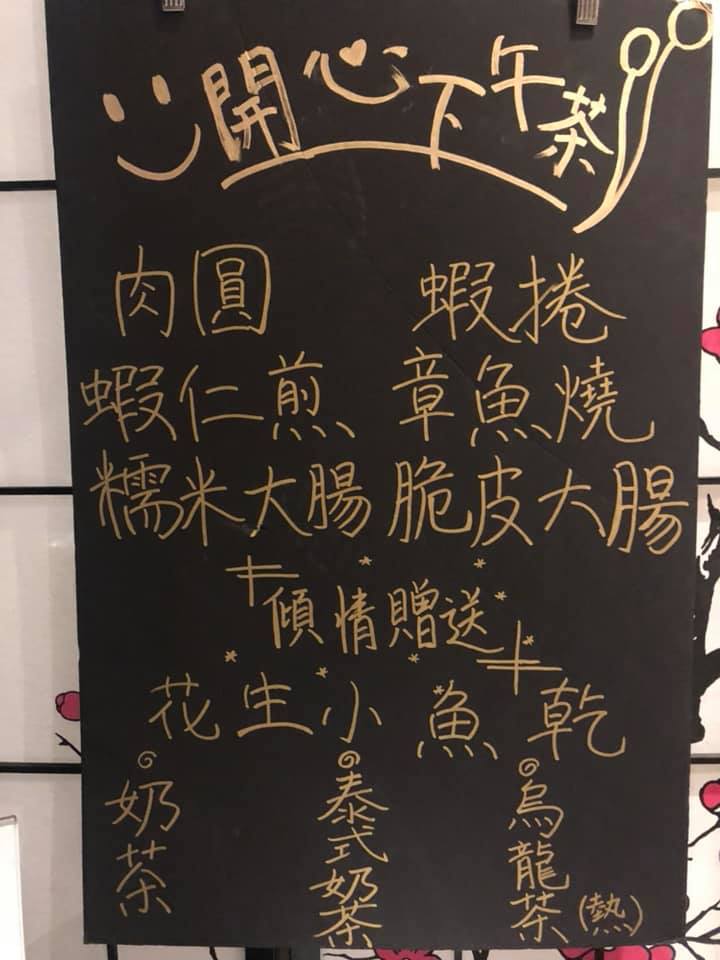 開心下午茶
肉圓 蝦捲
蝦仁煎 章魚燒
糯米大腸 脆皮大腸
傾情贈送
花生小魚乾
奶茶
泰式奶茶
烏龍茶(熱)